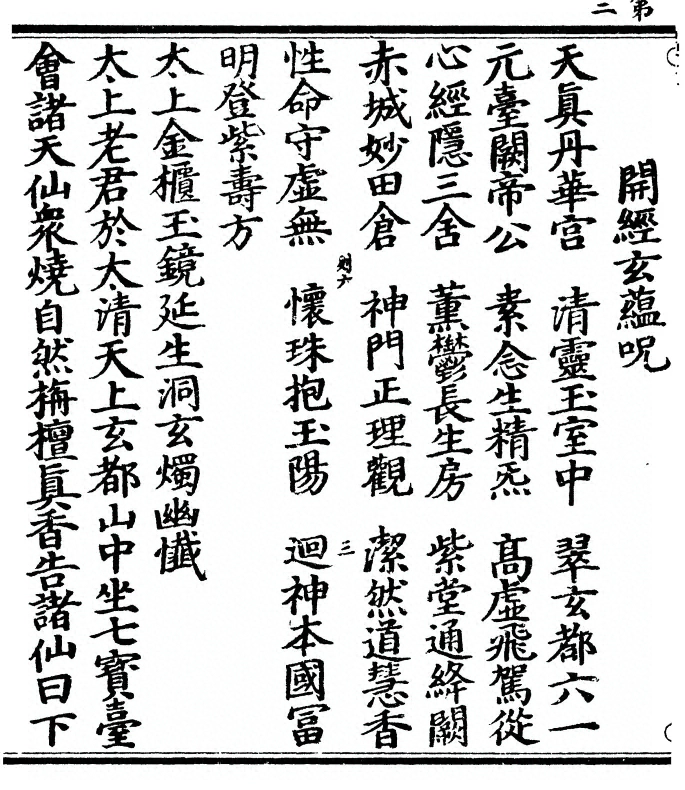 第二
開經玄蘊呪
天眞丹華宮 清靈玉室中 翠玄都六一
元臺闕帝公 素念生精炁 高虛飛駕從
心經隱三舍 薰鬱長生房 紫堂通絳闕
赤城妙田倉 神門正理觀 潔然道慧香
三
性命守虛無 懷珠抱玉陽 迴神本國冨
明登紫壽方
太上金櫃玉鏡延生洞玄燭幽懺
太上老君於太清天上玄都山中坐七寳臺
會諸天仙衆燒自然栴檀眞香告諸仙曰下